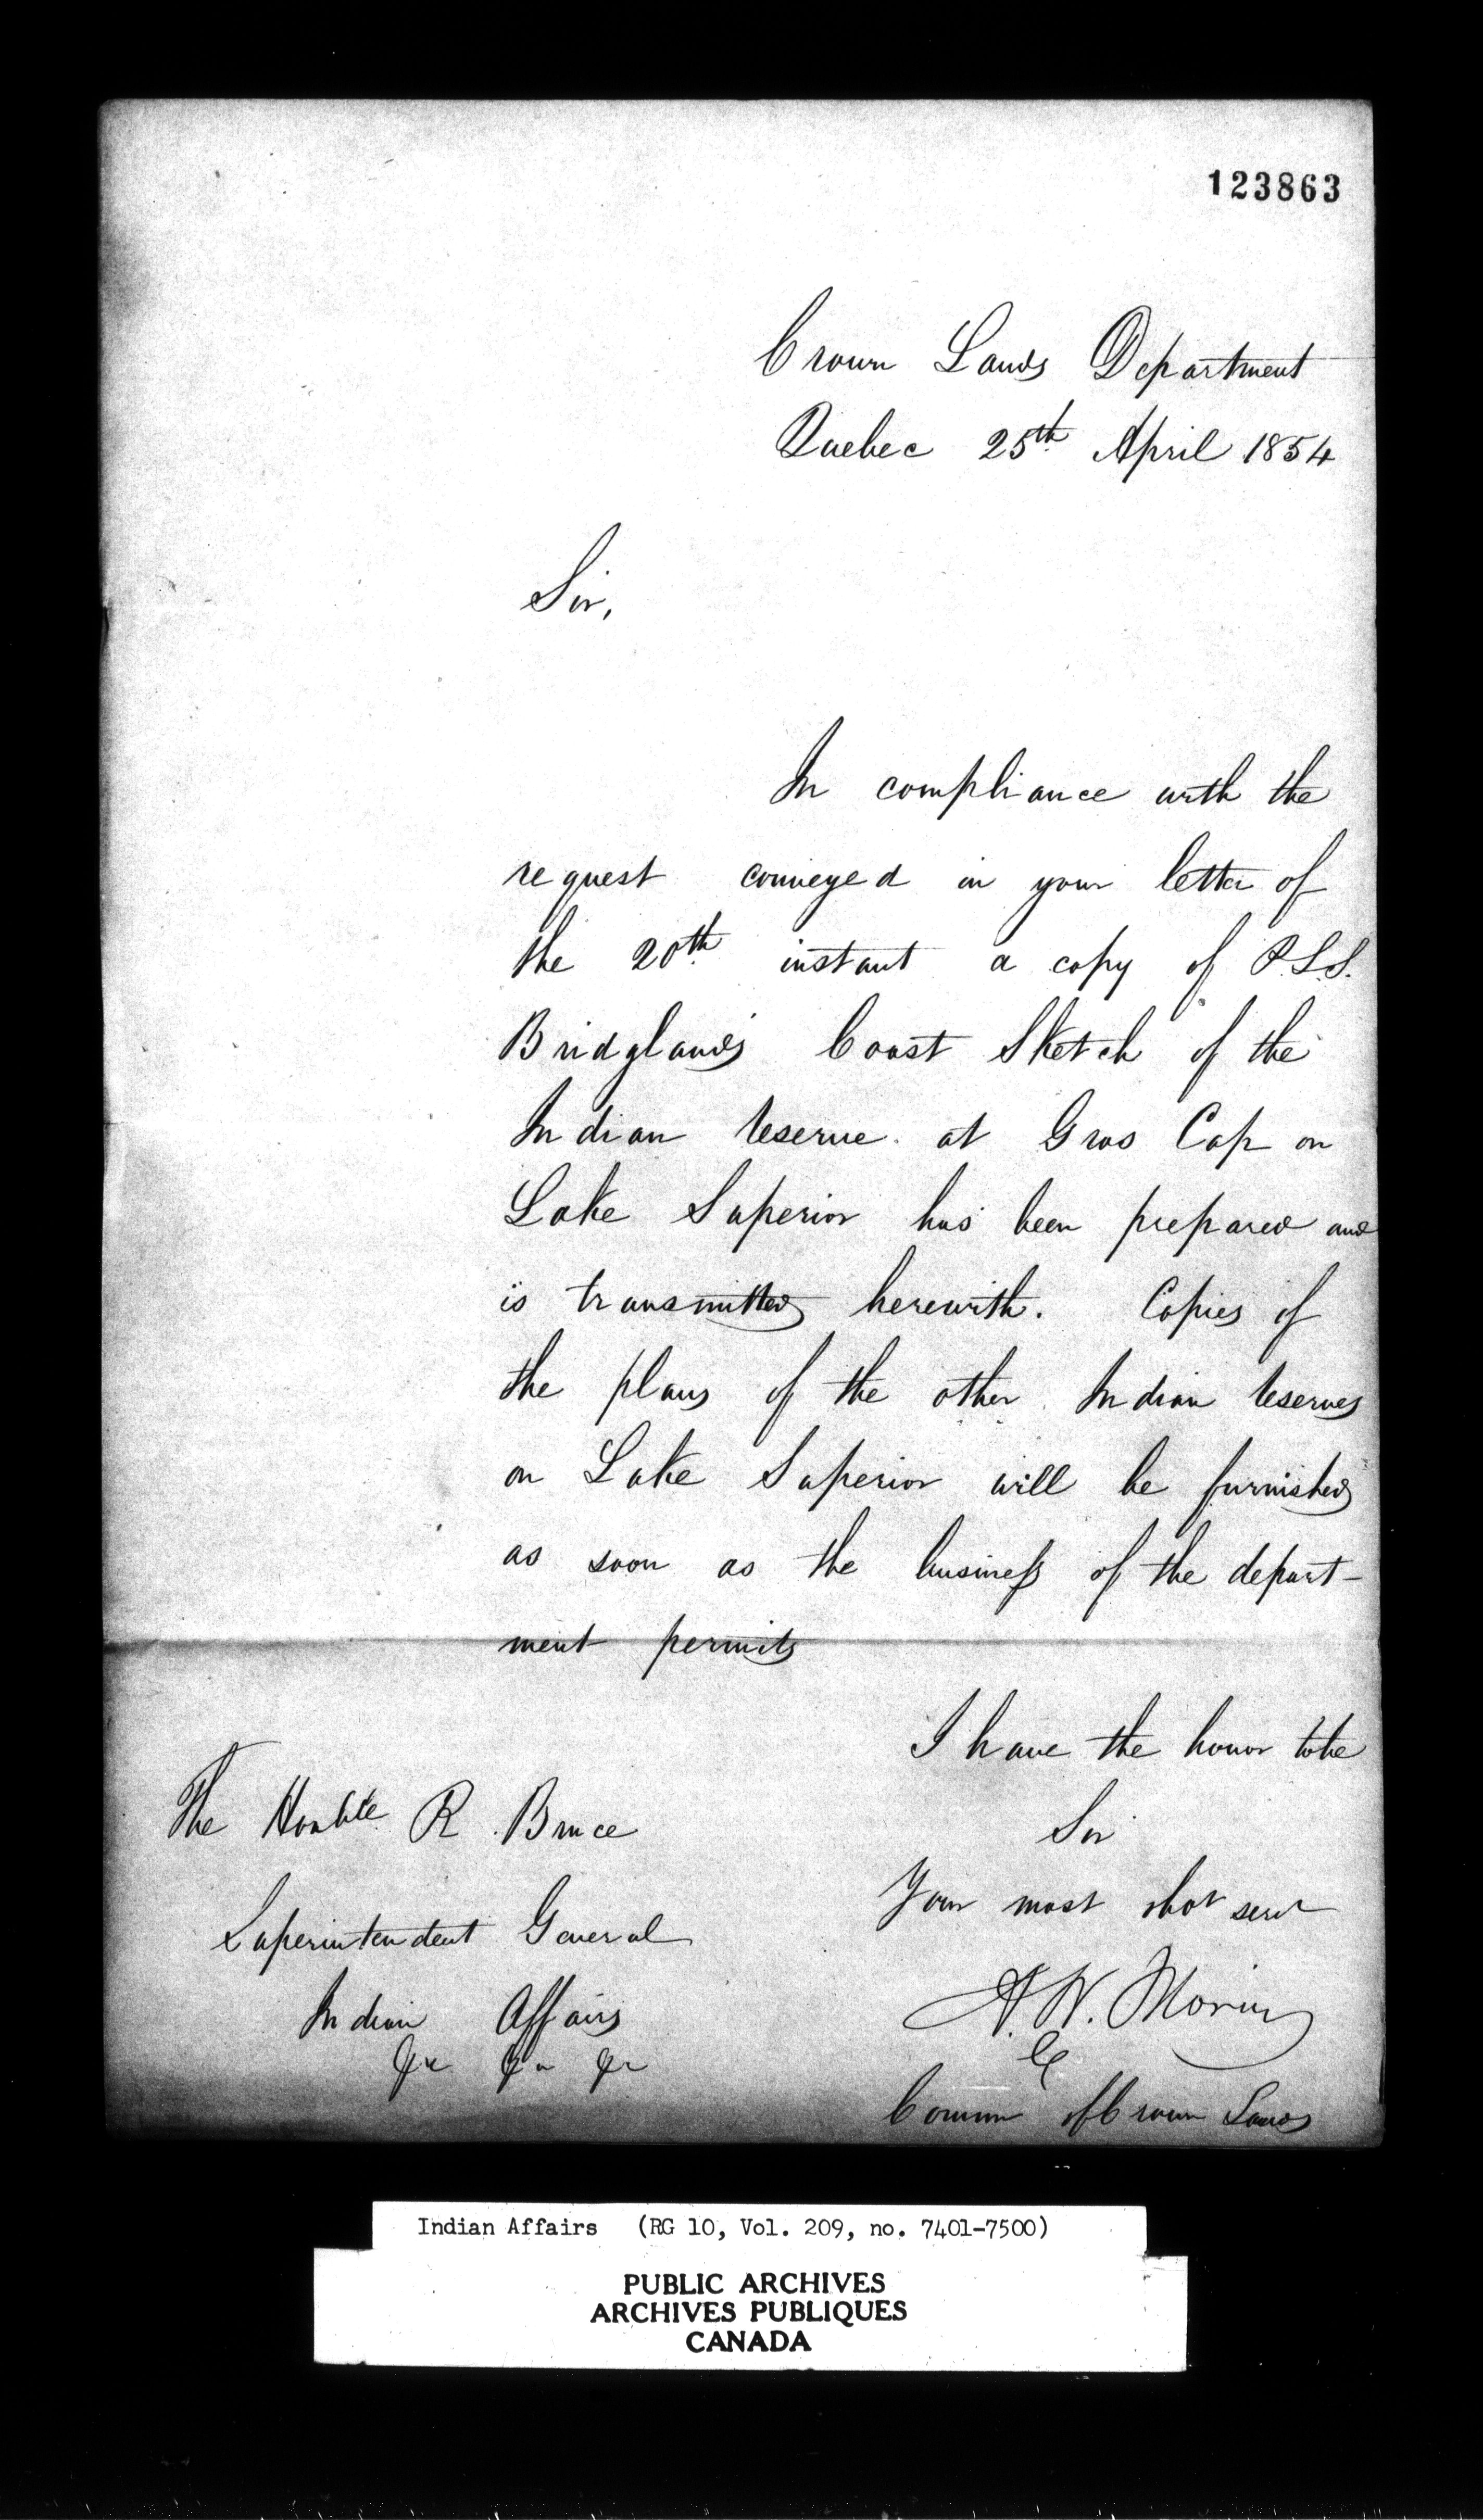 123863
Crown Lands Department
Quebec 25th April 1854
Sir,
In compliance with the
request conveyed in your letter of
the 20th instant a copy of P.L.S.
Bridgland's Coast Sketch of the
Indian reserve at Gros Cap on
Lake Superior has been prepared and
is transmitted herewith. Copies of
the plans of the other Indian reserves
on Lake Superior will be furnished
as soon as the business of the depart-
ment permits
I have the honor to be
Sir
Your most obt servt
A. N. Morin
Commr of Crown Lands
The Honble R Bruce
Superintendent General
Indian Affairs
&c &c &c
Indian Affairs (RG 10, Vol. 209, no. 7401-7500)
PUBLIC ARCHIVES
ARCHIVES PUBLIQUES
CANADA